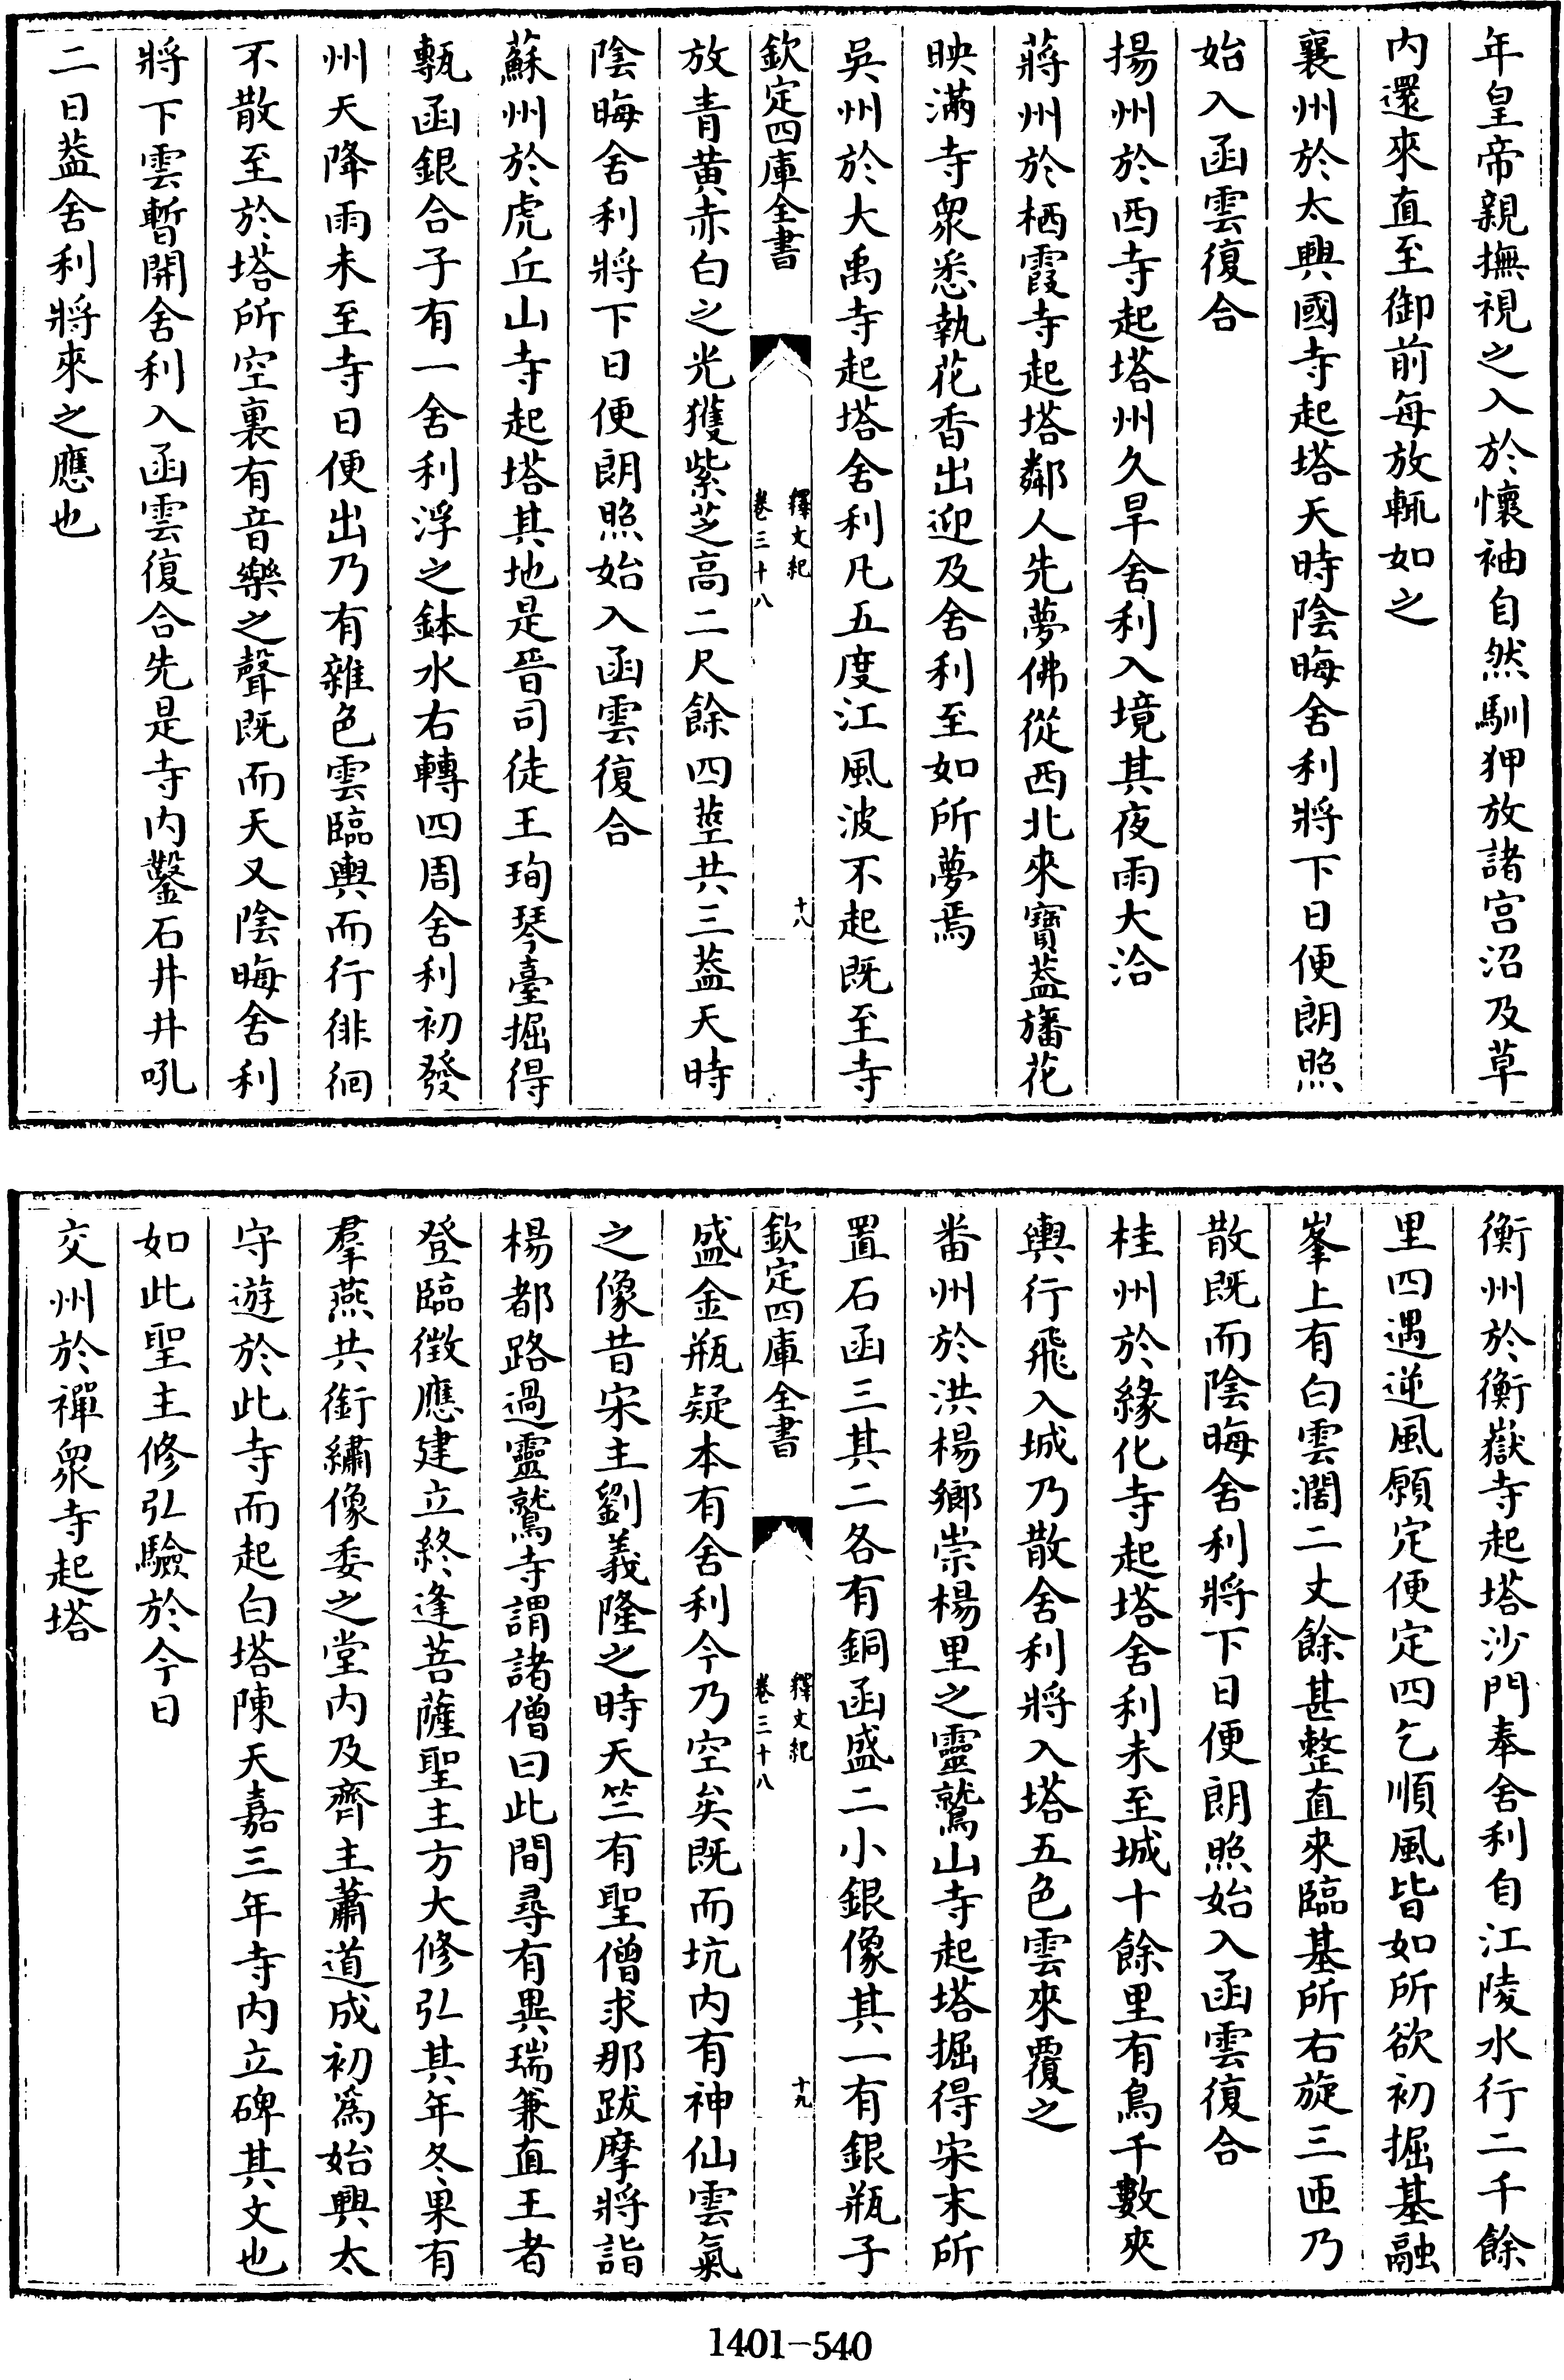 年皇帝親撫視之入於懷袖自然馴狎放諸宮沼及草
内還來直至御前每放輒如之
襄州於大興國寺起塔天時陰晦舍利將下日便朗照
始入函雲復合
揚州於西寺起塔州久旱舍利入境其夜雨大洽
蔣州於栖霞寺起塔鄰人先夢佛從西北來寶葢旛花
映滿寺衆悉執花香出迎及舍利至如所夢焉
吳州於大禹寺起塔舍利凡五度江風波不起既至寺
欽定四庫全書
釋文紀
卷三十八
十八
放青黄赤白之光獲紫芝高二尺餘四莖共三葢天時
陰晦舍利將下日便朗照始入函雲復合
蘇州於虎丘山寺起塔其地是晉司徒王珣琴臺掘得
甎函銀合子有一舍利浮之鉢水右轉四周舍利初發
州天降雨未至寺日便出乃有雜色雲臨輿而行徘徊
不散至於塔所空裏有音樂之聲既而天又陰晦舍利
將下雲暫開舍利入函雲復合先是寺内鑿石井井吼
二日葢舍利將來之應也
衡州於衡嶽寺起塔沙門奉舍利自江陵水行二千餘
里四遇逆風願定便定四乞順風皆如所欲初掘基融
峯上有白雲濶二丈餘甚整直來臨基所右旋三匝乃
散既而陰晦舍利將下日便朗照始入函雲復合
桂州於緣化寺起塔舍利未至城十餘里有鳥千數夾
輿行飛入城乃散舍利將入塔五色雲來覆之
番州於洪楊鄉崇楊里之靈鷲山寺起塔掘得宋末所
置石函三其二各有銅函盛二小銀像其一有銀瓶子
欽定四庫全書
釋文紀
卷三十八
十九
盛金瓶疑本有舍利今乃空矣既而坑内有神仙雲氣
之像昔宋主劉義隆之時天竺有聖僧求那跋摩將詣
楊都路過靈鷲寺謂諸僧曰此間尋有異瑞兼直王者
登臨徴應建立終逢菩薩聖主方大修弘其年冬果有
羣燕共銜繡像委之堂内及齊主蕭道成初為始興太
守遊於此寺而起白塔陳天嘉三年寺内立碑其文也
如此聖主修弘驗於今日
交州於禪衆寺起塔
1401-540